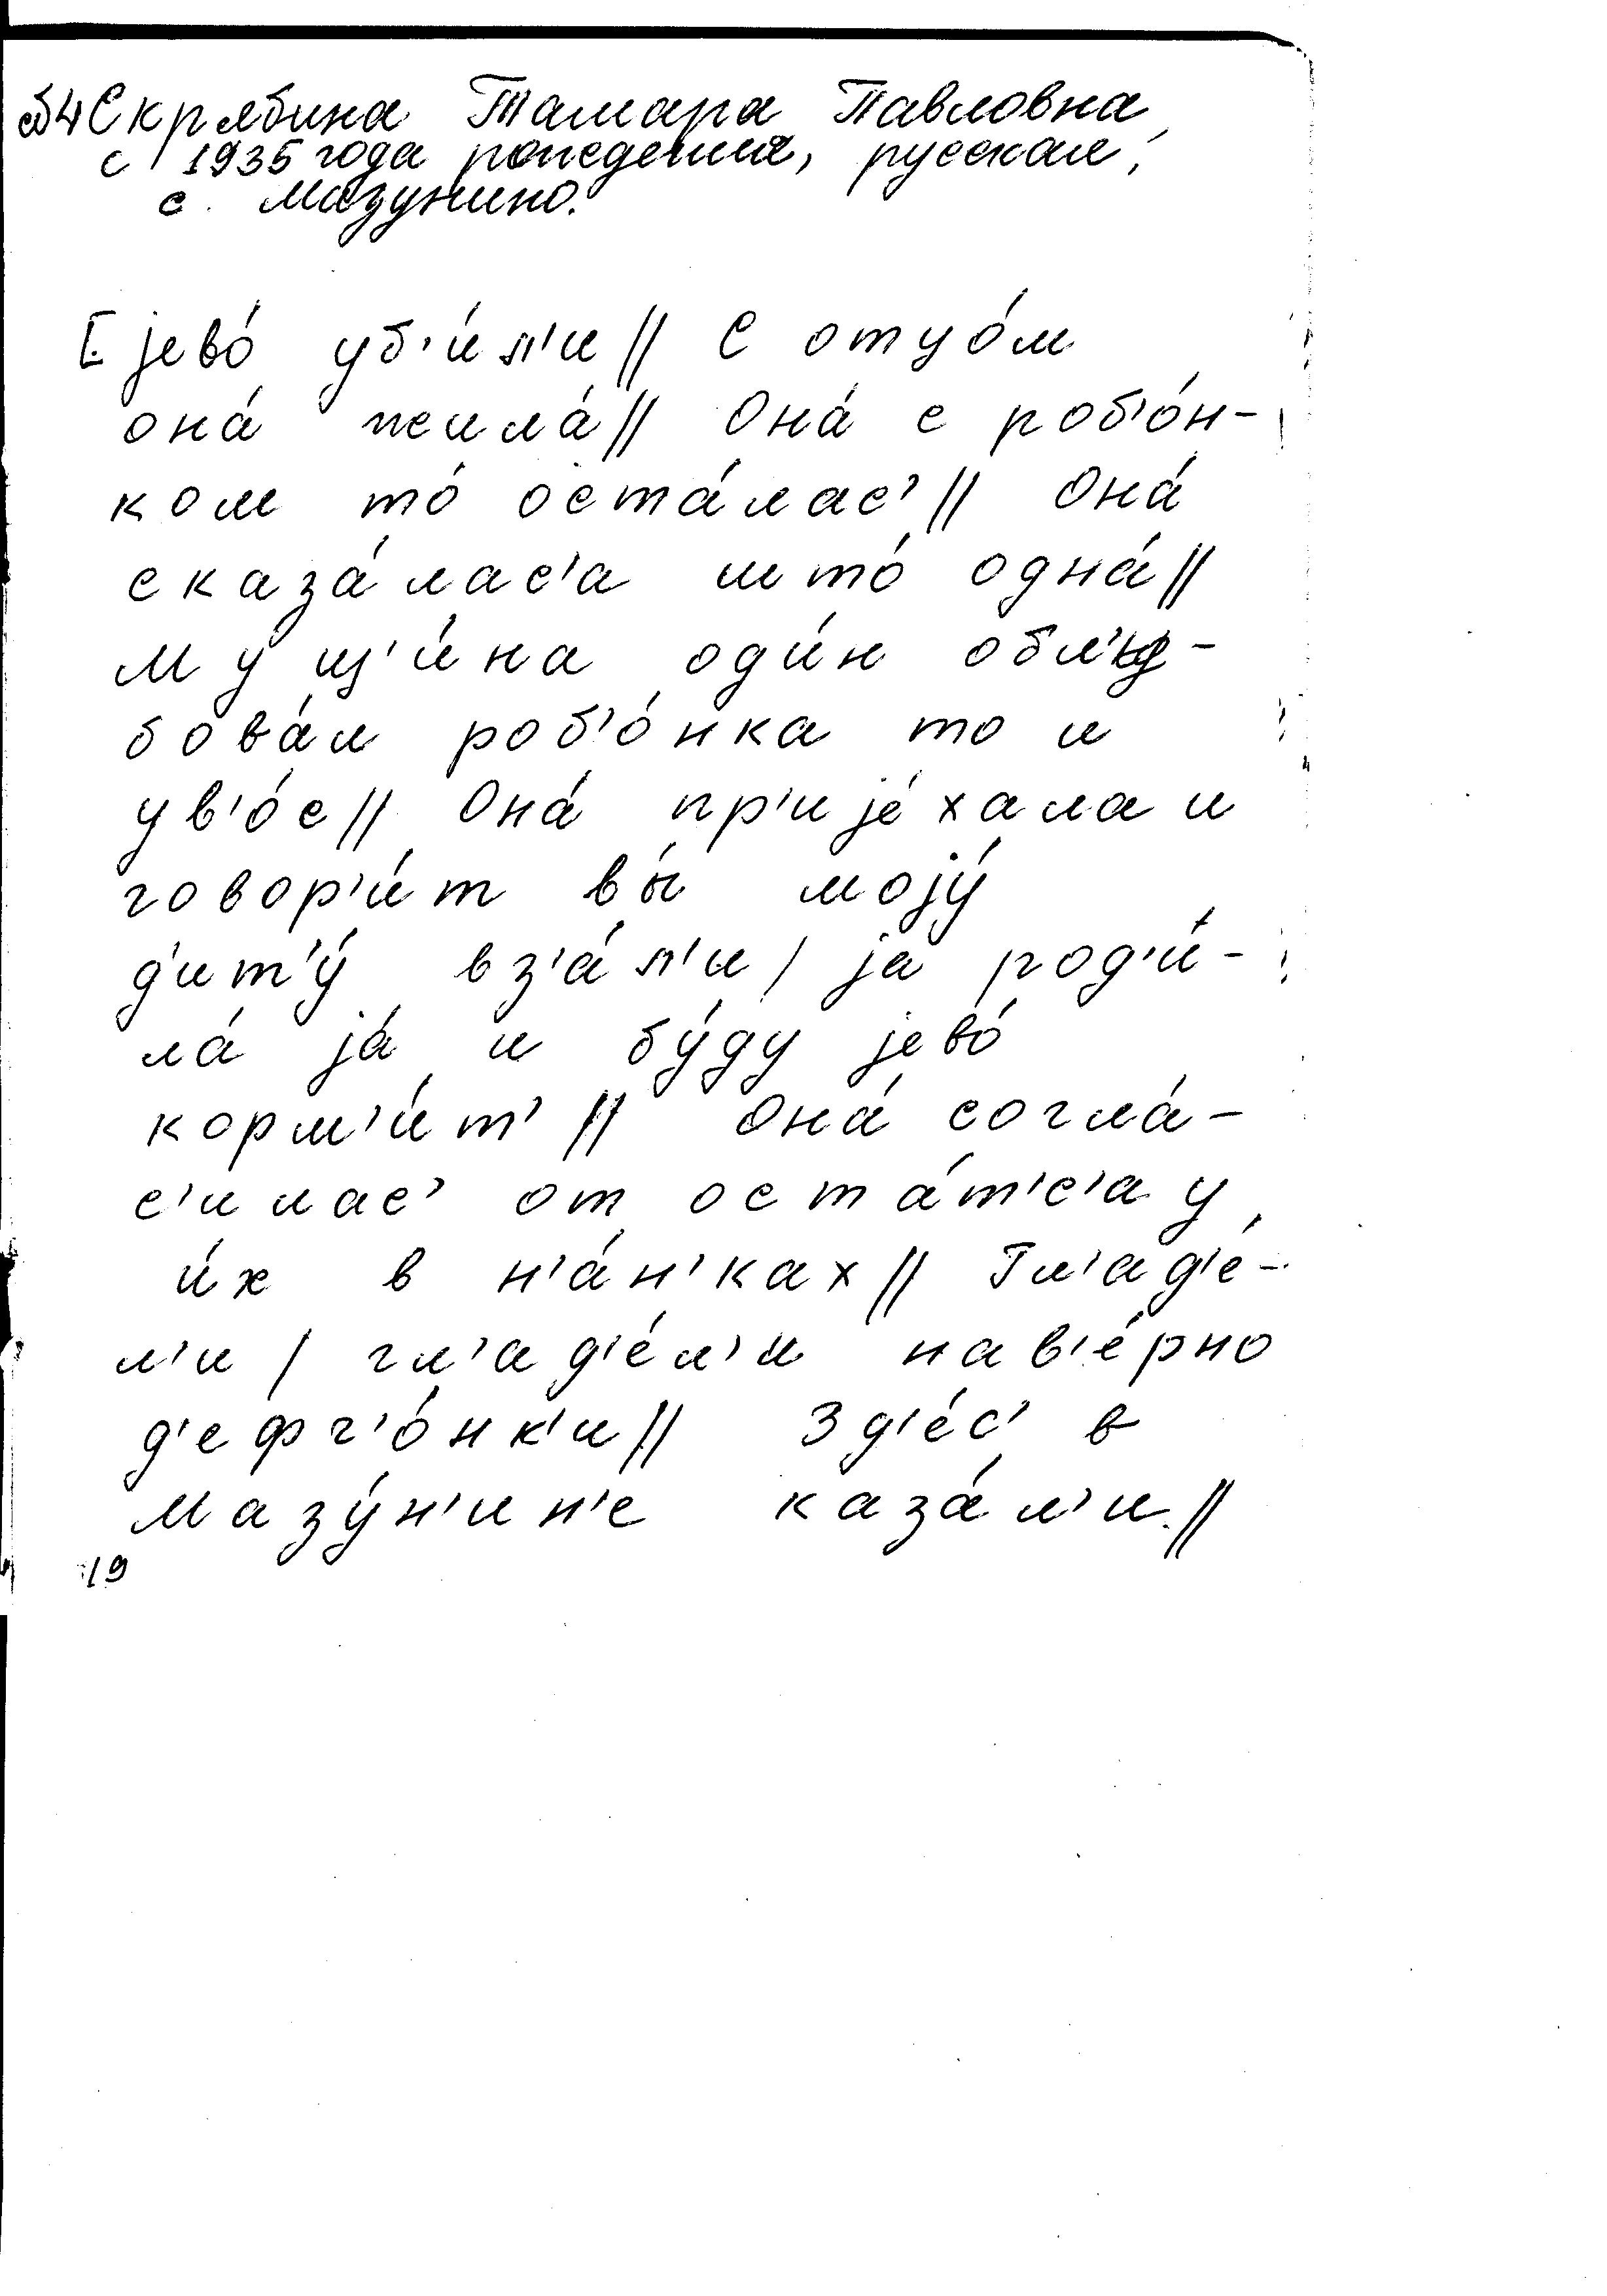 54 Скрябина Тамара Павловна,
с 1935 года рождения, русская,
с. Мазунино.
[ јево́ уб'и́л'и // С отцо́м
она́ жила́ // Она́ с роб'о́н-
ком то́ оста́лас' // Она́
сказа́лас'а што́ одна́ //
Мущ'и́на оди́н обл'у-
бова́л роб'о́нка то и
ув'о́с // Она́ пр'ије́хала и
говор'и́т вы́ моју́
д'ит'у́ вз'а́л'и / ја род'и́-
ла́ ја́ и бу́ду јево́
корм'и́т' // Она́ согла́-
с'илас' от оста́т'с'а у
и́х в н'а́н'ках // Гл'ад'е́-
л'и / гл'ад'е́л'и нав'е́рно
д'ефч'о́нк'и // Зд'е́с' в
Мазу́н'ин'е каза́л'и. //
19